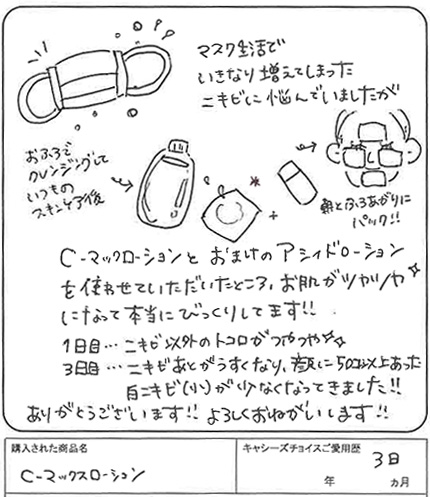 マスク生活で
いきなり増えてしまった
ニキビに悩んでいましたが
おふろで
クレンジングして
いつもの
スキンケア後
+
朝とふろあがりに
パック!!
C-マックローションと おまけのアシィドローション
を使わせていただいたところ、お肌がツヤツヤ
になって本当にびっくりしてます!!
1日目…ニキビ以外のトコロがつやつや
3日目…ニキビあとがうすくなり、顔に50コ以上あった
白ニキビ(小)が少なくなってきました!!
ありがとうございます!! よろしくおねがいします!!
購入された商品名
キャシーズチョイスご愛用歴
C-マックスローション
3日
年 ヵ月